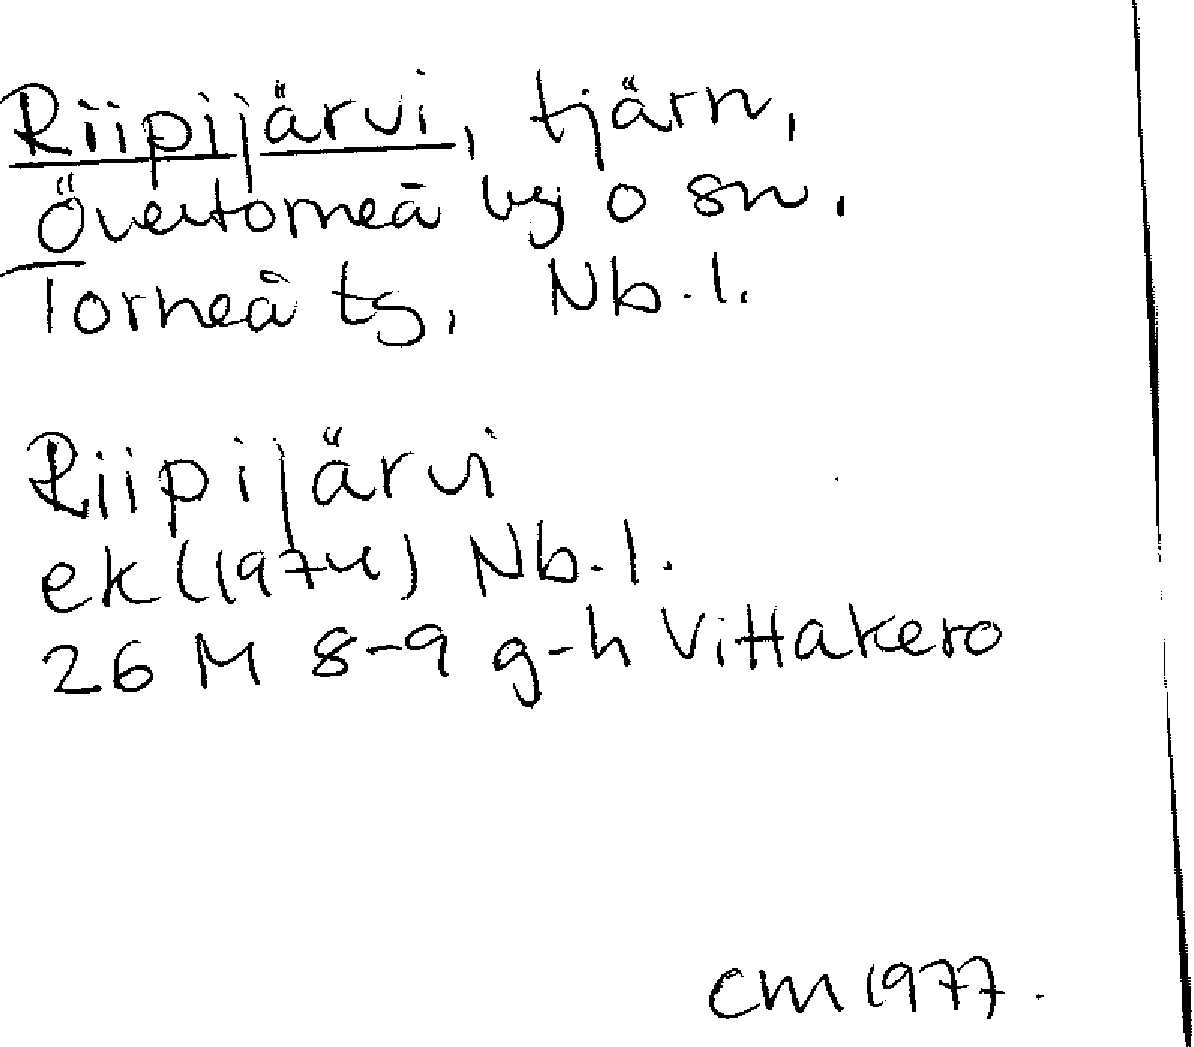 Riipijärvi, tjärn,
Övertorneå by o sn.
Torneå tg, Nb.l.
Riipijärvi
ek (1974) Nb.l.
26 M 8-9 g-h Vittakero
CM 1977.